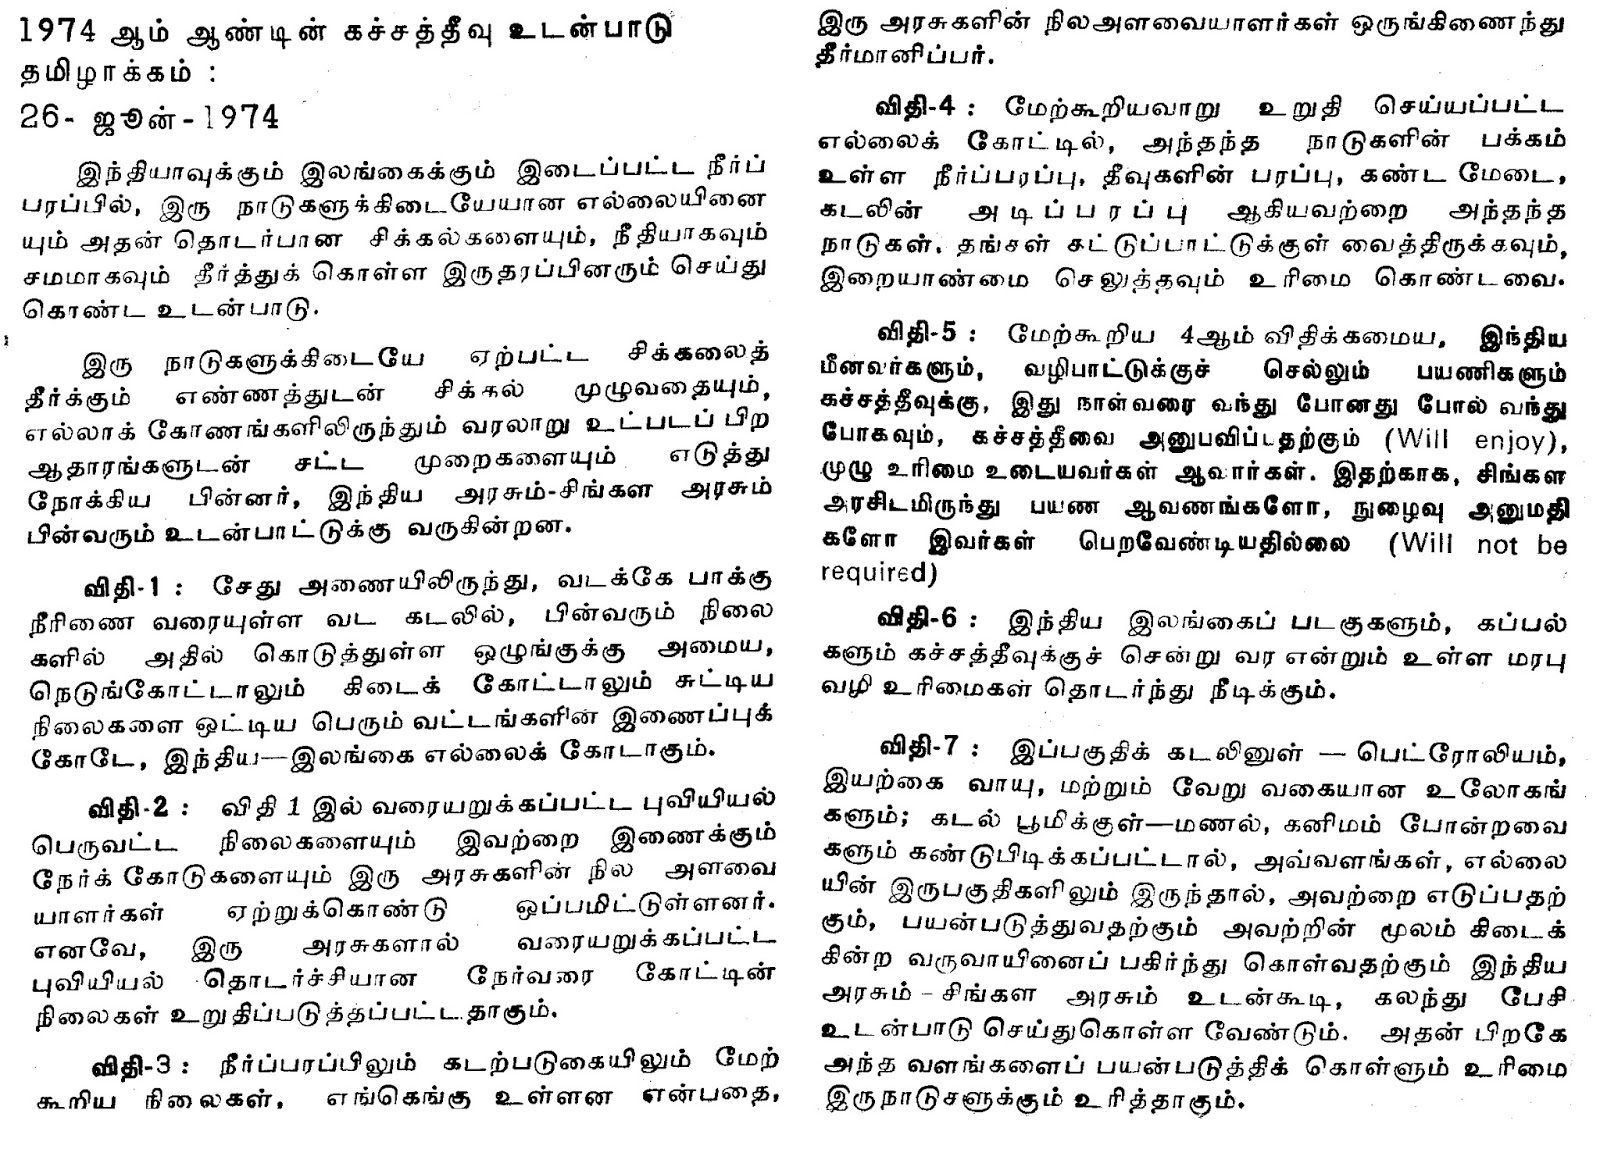 1974 ஆம் ஆண்டின் கச்சத்தீவு உடன்பாடு
தமிழாக்கம் :
26- ஜூன் - 1974
இந்தியாவுக்கும் இலங்கைக்கும் இடைப்பட்ட நீர்ப்
பரப்பில், இரு நாடுகளுக்கிடையேயான எல்லையினை
யும் அதன் தொடர்பான சிக்கல்களையும், நீதியாகவும்
சமமாகவும் தீர்த்துக் கொள்ள இருதரப்பினரும் செய்து
கொண்ட உடன்பாடு.
இரு நாடுகளுக்கிடையே ஏற்பட்ட சிக்கலைத்
தீர்க்கும் எண்ணத்துடன் சிக்கல் முழுவதையும்,
எல்லாக் கோணங்களிலிருந்தும் வரலாறு உட்படப் பிற
ஆதாரங்களுடன் சட்ட முறைகளையும் எடுத்து
நோக்கிய பின்னர், இந்திய அரசும்-சிங்கள அரசும்
பின்வரும் உடன்பாட்டுக்கு வருகின்றன.
விதி-1 : சேது அணையிலிருந்து, வடக்கே பாக்கு
நீரிணை வரையுள்ள வட கடலில், பின்வரும் நிலை
களில் அதில் கொடுத்துள்ள ஒழுங்குக்கு அமைய,
நெடுங்கோட்டாலும் கிடைக் கோட்டாலும் சுட்டிய
நிலைகளை ஒட்டிய பெரும் வட்டங்களின் இணைப்புக்
கோடே, இந்திய—இலங்கை எல்லைக் கோடாகும்.
விதி-2 : விதி 1 இல் வரையறுக்கப்பட்ட புவியியல்
பெருவட்ட நிலைகளையும் இவற்றை இணைக்கும்
நேர்க் கோடுகளையும் இரு அரசுகளின் நில அளவை
யாளர்கள் ஏற்றுக்கொண்டு ஒப்பமிட்டுள்ளனர்.
எனவே, இரு அரசுகளால் வரையறுக்கப்பட்ட
புவியியல் தொடர்ச்சியான நேர்வரை கோட்டின்
நிலைகள் உறுதிப்படுத்தப்பட்டதாகும்.
விதி-3 : நீர்ப்பரப்பிலும் கடற்படுகையிலும் மேற்
கூறிய நிலைகள், எங்கெங்கு உள்ளன என்பதை,
இரு அரசுகளின் நிலஅளவையாளர்கள் ஒருங்கிணைந்து
தீர்மானிப்பர்.
விதி-4 : மேற்கூறியவாறு உறுதி செய்யப்பட்ட
எல்லைக் கோட்டில், அந்தந்த நாடுகளின் பக்கம்
உள்ள நீர்ப்பரப்பு, தீவுகளின் பரப்பு, கண்ட மேடை,
கடலின் அடிப்பரப்பு ஆகியவற்றை அந்தந்த
நாடுகள். தங்கள் கட்டுப்பாட்டுக்குள் வைத்திருக்கவும்,
இறையாண்மை செலுத்தவும் உரிமை கொண்டவை.
விதி-5 : மேற்கூறிய 4ஆம் விதிக்கமைய, இந்திய
மீனவர்களும், வழிபாட்டுக்குச் செல்லும் பயணிகளும்
கச்சத்தீவுக்கு, இது நாள்வரை வந்து போனது போல் வந்து
போகவும், கச்சத்தீவை அனுபவிப்பதற்கும் (Will enjoy),
முழு உரிமை உடையவர்கள் ஆவார்கள். இதற்காக, சிங்கள
அரசிடமிருந்து பயண ஆவணங்களோ, நுழைவு அனுமதி
களோ இவர்கள் பெறவேண்டியதில்லை (Will not be
required)
விதி-6 : இந்திய இலங்கைப் படகுகளும், கப்பல்
களும் கச்சத்தீவுக்குச் சென்று வர என்றும் உள்ள மரபு
வழி உரிமைகள் தொடர்ந்து நீடிக்கும்.
விதி-7 : இப்பகுதிக் கடலினுள் — பெட்ரோலியம்,
இயற்கை வாயு, மற்றும் வேறு வகையான உலோகங்
களும்; கடல் பூமிக்குள்—மணல், கனிமம் போன்றவை
களும் கண்டுபிடிக்கப்பட்டால், அவ்வளங்கள், எல்லை
யின் இருபகுதிகளிலும் இருந்தால், அவற்றை எடுப்பதற்
கும், பயன்படுத்துவதற்கும் அவற்றின் மூலம் கிடைக்
கின்ற வருவாயினைப் பகிர்ந்து கொள்வதற்கும் இந்திய
அரசும் - சிங்கள அரசும் உடன்கூடி, கலந்து பேசி
உடன்பாடு செய்துகொள்ள வேண்டும். அதன் பிறகே
அந்த வளங்களைப் பயன்படுத்திக் கொள்ளும் உரிமை
இருநாடுகளுக்கும் உரித்தாகும்.